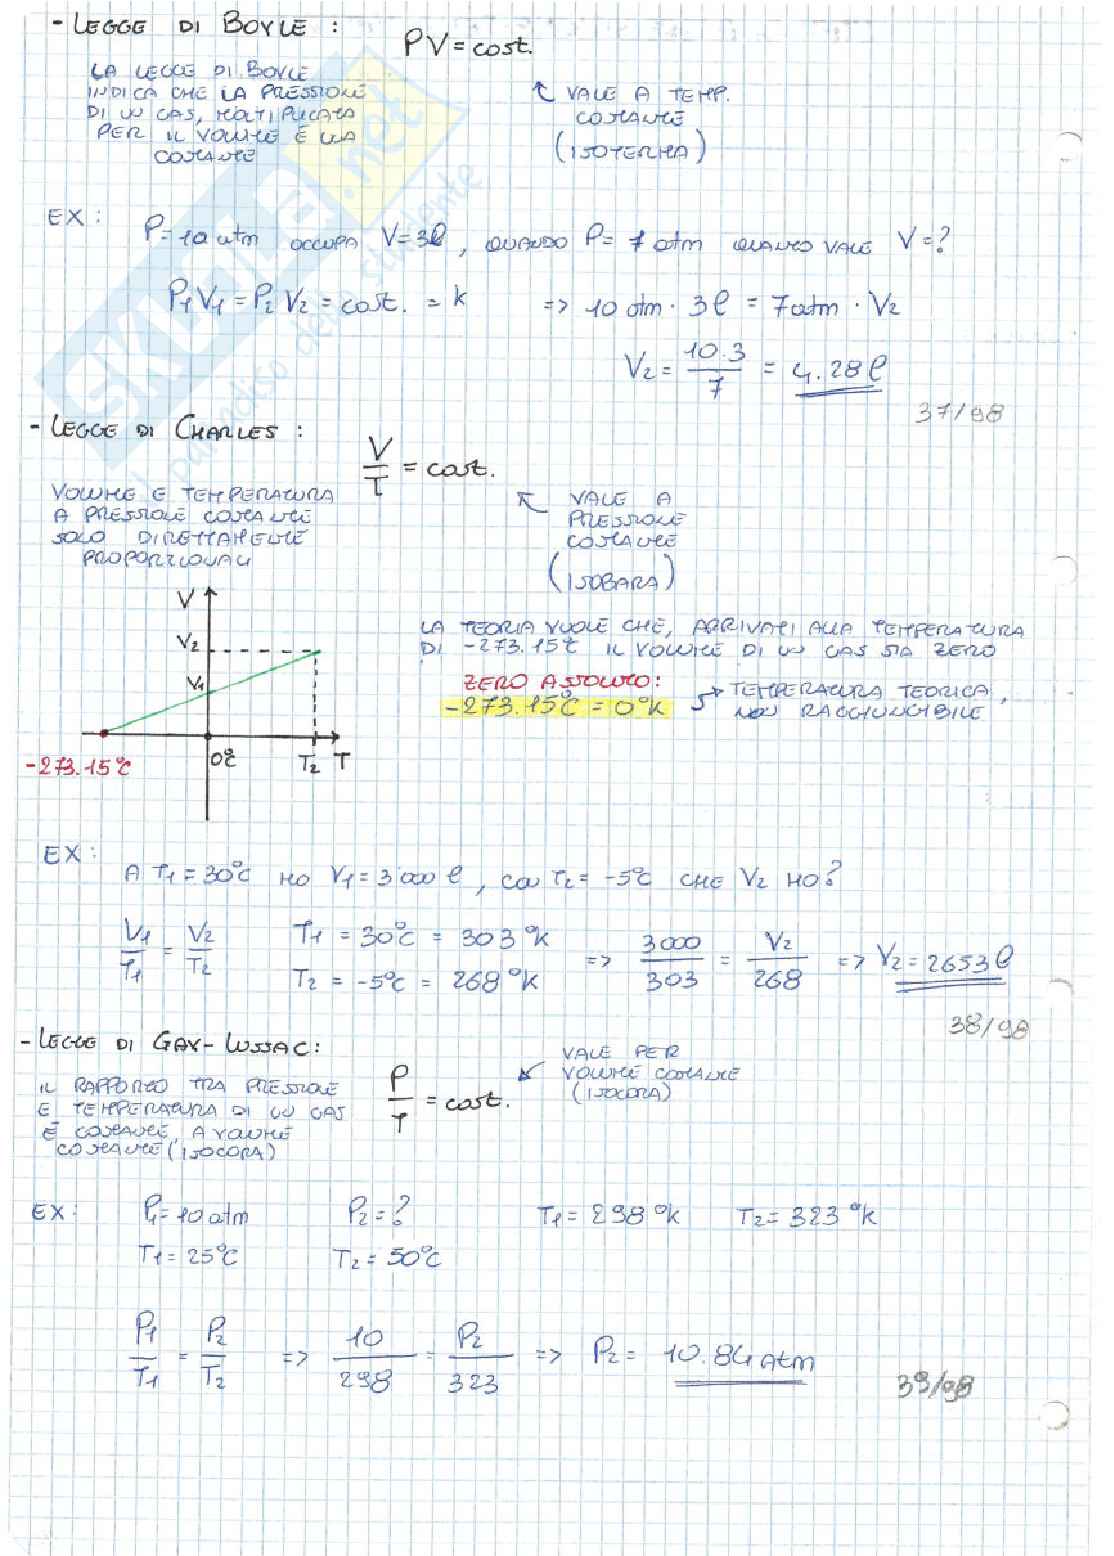 - LEGGE DI BOYLE :
PV = cost.
LA LEGGE DI BOYLE
INDICA CHE LA PRESSIONE
DI UN GAS, MOLTIPLICATA
PER IL VOLUME È UNA
COSTANTE
VALE A TEMP.
COSTANTE
(ISOTERMA)
EX :
P = 10 atm OCCUPA V = 3l , QUANDO P = 7 atm QUANTO VALE V = ?
P1 V1 = P2 V2 = cost. = k => 10 atm · 3l = 7 atm · V2
V2 = 10·3 / 7 = 4.28 l
37/98
- LEGGE DI CHARLES :
V / T = cost.
VOLUME E TEMPERATURA
A PRESSIONE COSTANTE
SOLO DIRETTAMENTE
PROPORZIONALI
VALE A
PRESSIONE
COSTANTE
(ISOBARA)
V
V2
V1
0°C
T2 T
-273.15°C
LA TEORIA VUOLE CHE, ARRIVATI ALLA TEMPERATURA
DI -273.15°C IL VOLUME DI UN GAS SIA ZERO
ZERO ASSOLUTO:
-273.15°C = 0°K
TEMPERATURA TEORICA,
NON RAGGIUNGIBILE
EX :
A T1 = 30°C HO V1 = 3000 l , CON T2 = -5°C CHE V2 HO?
V1 / T1 = V2 / T2
T1 = 30°C = 303 °K
T2 = -5°C = 268 °K
=> 3000 / 303 = V2 / 268 => V2 = 2653 l
38/98
- LEGGE DI GAY-LUSSAC :
P / T = cost.
IL RAPPORTO TRA PRESSIONE
E TEMPERATURA DI UN GAS
È COSTANTE, A VOLUME
COSTANTE (ISOCORA)
VALE PER
VOLUME COSTANTE
(ISOCORA)
EX : P1 = 10 atm P2 = ? T1 = 298 °K T2 = 323 °K
T1 = 25°C T2 = 50°C
P1 / T1 = P2 / T2 => 10 / 298 = P2 / 323 => P2 = 10.84 Atm
39/98
SKUOLA.net
il paradiso dello studente